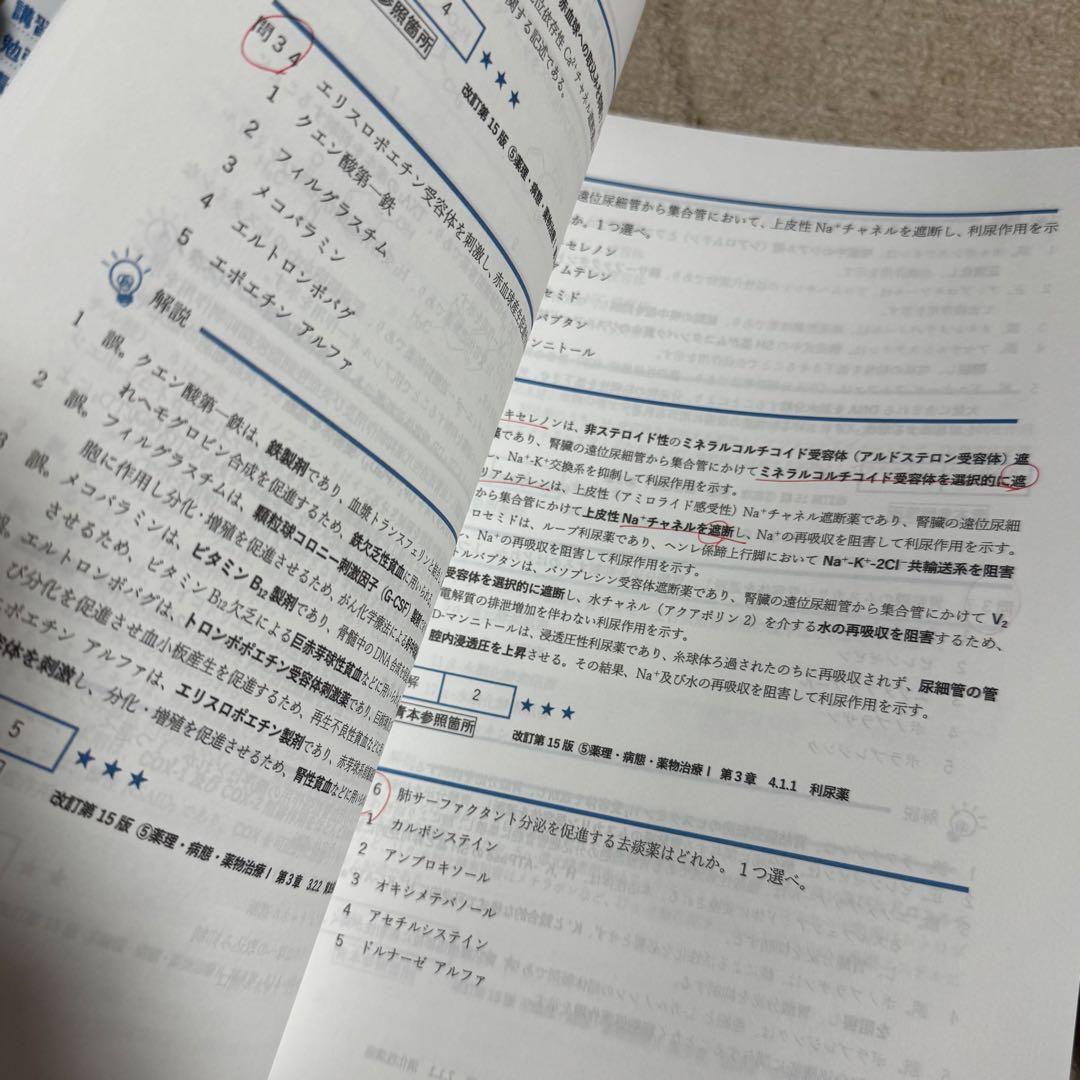 講習
勉強
赤血球への取込みを
位依存性 Ca²⁺ チャネル
関する記述である。
4
参照箇所
★★★
改訂第15版 ⑤薬理・病態・薬物治療Ⅰ
問34
エリスロポエチン受容体を刺激し、赤血球産生を
1 クエン酸第一鉄
2 フィルグラスチム
3 メコバラミン
4 エルトロンボパグ
5 エポエチン アルファ
解説
1 誤。クエン酸第一鉄は、鉄製剤であり、血漿トランスフェリンと結合
れヘモグロビン合成を促進するため、鉄欠乏性貧血に用いられる。
2 誤。フィルグラスチムは、顆粒球コロニー刺激因子（G-CSF）製剤
胞に作用し分化・増殖を促進させるため、がん化学療法による
3 誤。メコバラミンは、ビタミンB₁₂製剤であり、骨髄中のDNA合成を
させるため、ビタミンB₁₂欠乏による巨赤芽球性貧血などに用いられ
誤。エルトロンボパグは、トロンボポエチン受容体刺激薬であり、
び分化を促進させ血小板産生を促進するため、再生不良性貧血などに
エポエチン アルファは、エリスロポエチン製剤であり、赤芽球系
容体を刺激し、分化・増殖を促進させるため、腎性貧血などに用いられ
5
★★★
改訂第15版 ⑤薬理・病態・薬物治療Ⅰ 第3章 3.2.2
遠位尿細管から集合管において、上皮性Na⁺チャネルを遮断し、利尿作用を示
か。1つ選べ。
セレノン
ムテレン
セミド
バプタン
ンニトール
キセレノンは、非ステロイド性のミネラルコルチコイド受容体（アルドステロン受容体）遮
薬であり、腎臓の遠位尿細管から集合管にかけてミネラルコルチコイド受容体を選択的に遮
し、Na⁺-K⁺交換系を抑制して利尿作用を示す。
リアムテレンは、上皮性（アミロライド感受性）Na⁺チャネル遮断薬であり、腎臓の遠位尿細
から集合管にかけて上皮性Na⁺チャネルを遮断し、Na⁺の再吸収を阻害して利尿作用を示す。
ロセミドは、ループ利尿薬であり、ヘンレ係蹄上行脚においてNa⁺-K⁺-2Cl⁻共輸送系を阻害
、Na⁺の再吸収を阻害して利尿作用を示す。
トルバプタンは、バソプレシン受容体遮断薬であり、腎臓の遠位尿細管から集合管にかけてV₂
受容体を選択的に遮断し、水チャネル（アクアポリン2）を介する水の再吸収を阻害するため、
電解質の排泄増加を伴わない利尿作用を示す。
D-マンニトールは、浸透圧性利尿薬であり、糸球体ろ過されたのちに再吸収されず、尿細管の管
腔内浸透圧を上昇させる。その結果、Na⁺及び水の再吸収を阻害して利尿作用を示す。
解 2 ★★★
青本参照箇所
改訂第15版 ⑤薬理・病態・薬物治療Ⅰ 第3章 4.1.1 利尿薬
6 肺サーファクタント分泌を促進する去痰薬はどれか。1つ選べ。
1 カルボシステイン
2 アンブロキソール
3 オキシメテバノール
4 アセチルシステイン
5 ドルナーゼ アルファ